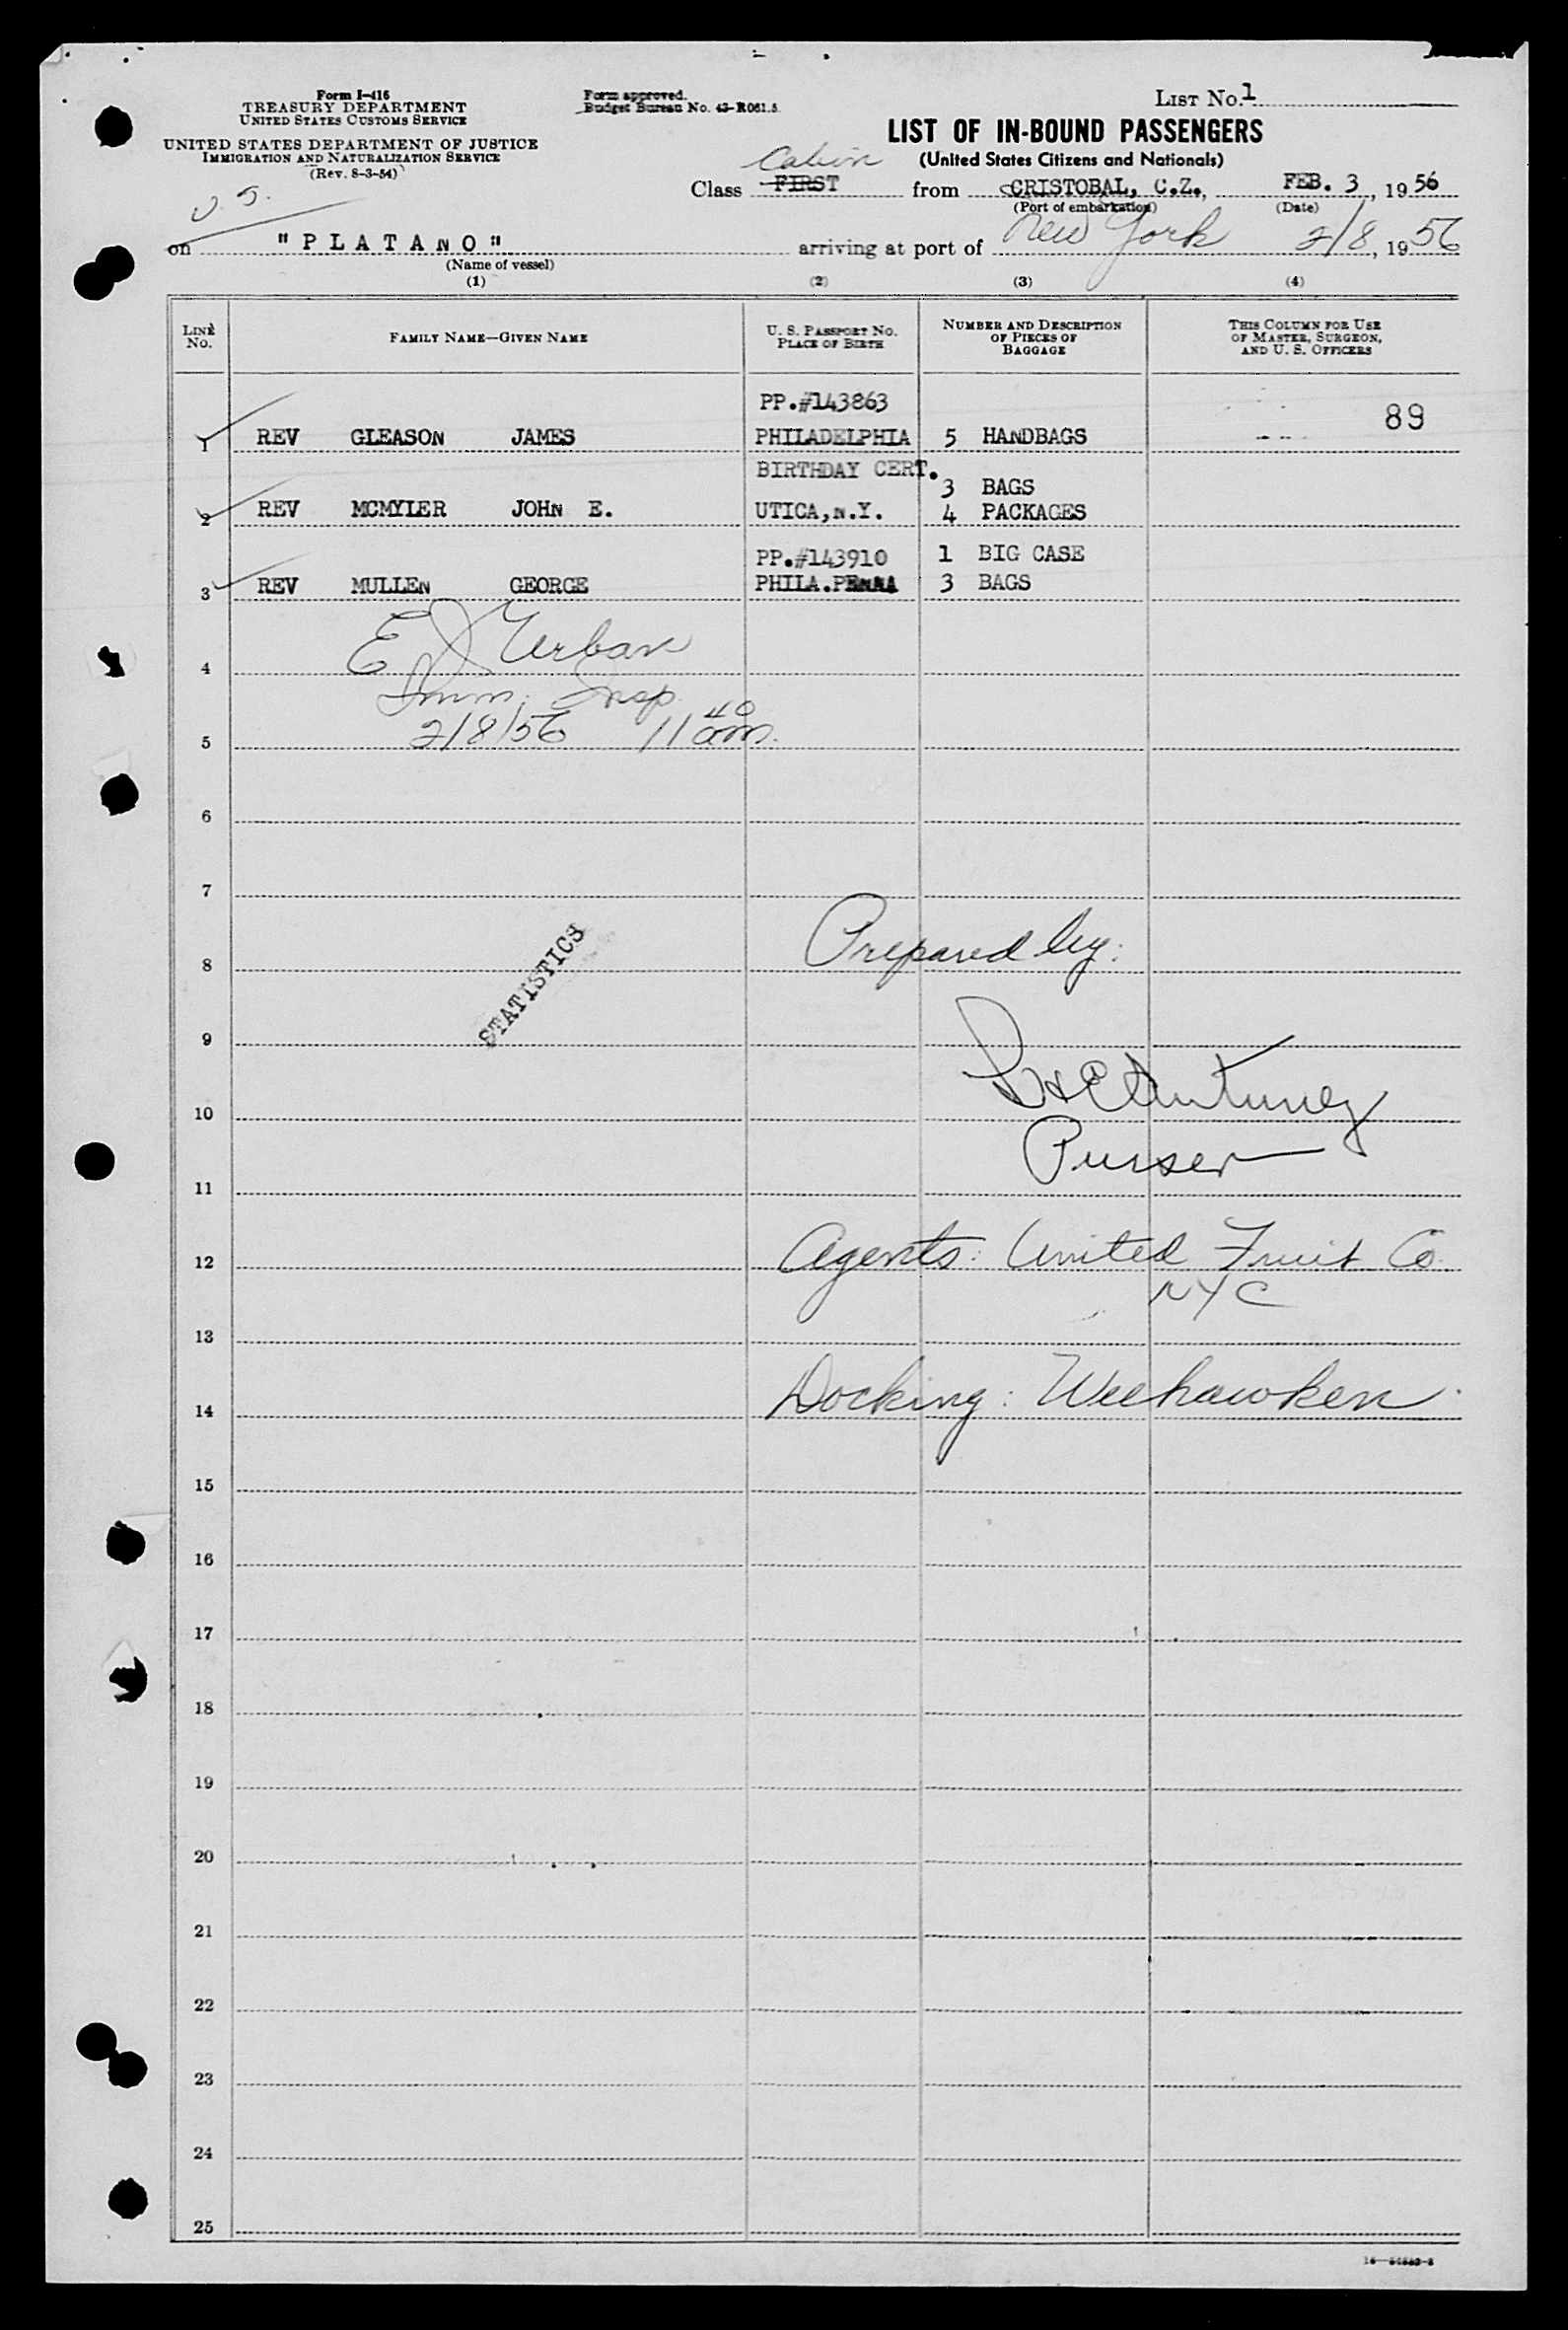 Form I-416
TREASURY DEPARTMENT
UNITED STATES CUSTOMS SERVICE
UNITED STATES DEPARTMENT OF JUSTICE
IMMIGRATION AND NATURALIZATION SERVICE
(Rev. 8-3-54)
Form approved.
Budget Bureau No. 43-R061.5.
LIST No. 1
LIST OF IN-BOUND PASSENGERS
(United States Citizens and Nationals)
Cabin
Class FIRST from CRISTOBAL, C.Z., FEB. 3, 1956
(Port of embarkation) (Date)
U.S.
on "PLATANO" arriving at port of New York 2/8, 1956
(Name of vessel)
(1) (2) (3) (4)
LINE No. FAMILY NAME—GIVEN NAME U. S. PASSPORT No. PLACE OF BIRTH NUMBER AND DESCRIPTION OF PIECES OF BAGGAGE THIS COLUMN FOR USE OF MASTER, SURGEON, AND U. S. OFFICERS
PP.#143863 89
1 REV GLEASON JAMES PHILADELPHIA 5 HANDBAGS
BIRTHDAY CERT. 3 BAGS
2 REV MCMYLER JOHN E. UTICA,N.Y. 4 PACKAGES
PP.#143910 1 BIG CASE
3 REV MULLEN GEORGE PHILA.PENNA 3 BAGS
E J Urban
4
Imm. Insp.
5 2/8/56 11 40 am.
6
7
8 Prepared by:
STATISTICS
9
10 Antunez
Purser
11
12 Agents: United Fruit Co.
NYC
13
14 Docking: Weehawken
15
16
17
18
19
20
21
22
23
24
25